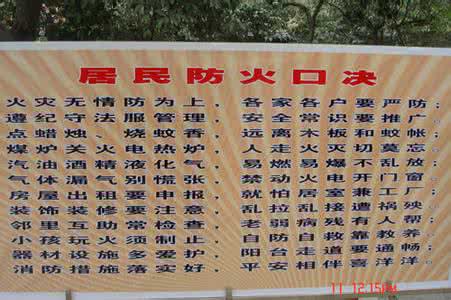 居民防火口决
火灾无情防为上，各家各户要严防；
遵纪守法服管理，安全常识要推广。
点蜡烛、烧蚊香，远离木板和蚊帐；
煤炉关火电热炉，人走火灭切莫忘。
汽油酒精液化气，易燃易爆不乱放；
气体漏气别慌张，禁动火电开门窗。
房屋出租要申报，就怕居室兼工厂；
装饰装修要注意，乱拉乱接遭祸殃。
邻里互助常检查，老弱病残有人帮；
小孩玩火须制止，自防自救靠教养。
器材设施多爱护，阳台走道要畅通；
消防措施落实好，平安相伴喜洋洋。